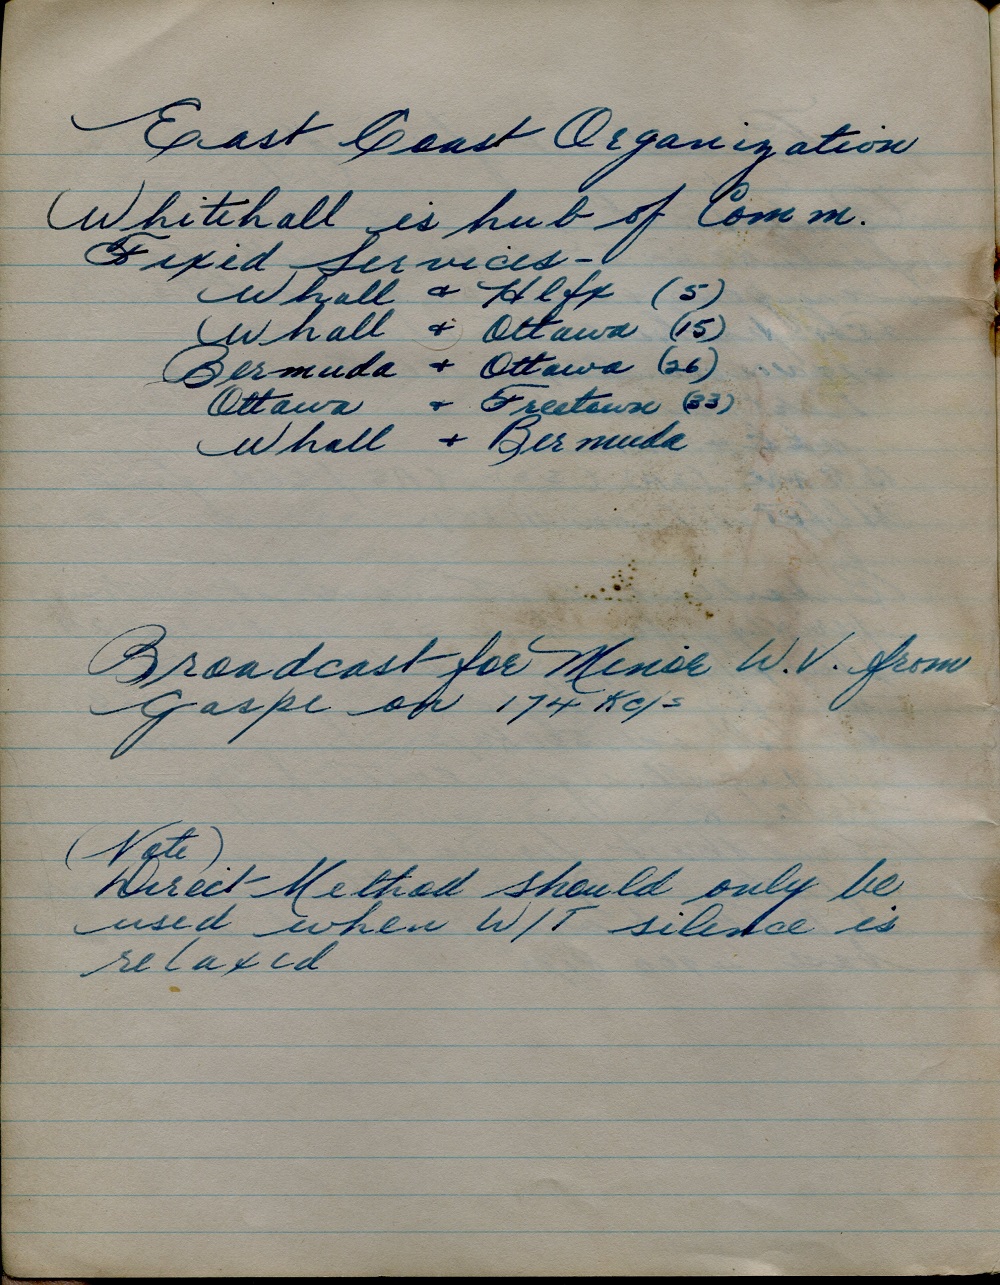 East Coast Organization
Whitehall is hub of Comm.
Fixed Services -
Whall & Hlfx (5)
Whall & Ottawa (15)
Bermuda + Ottawa (26)
Ottawa & Freetown (33)
Whall + Bermuda
Broadcast for Minor W.V. from
Gaspe on 174 Kc/s
(Note)
Direct Method should only be
used when W/T silence is
relaxed